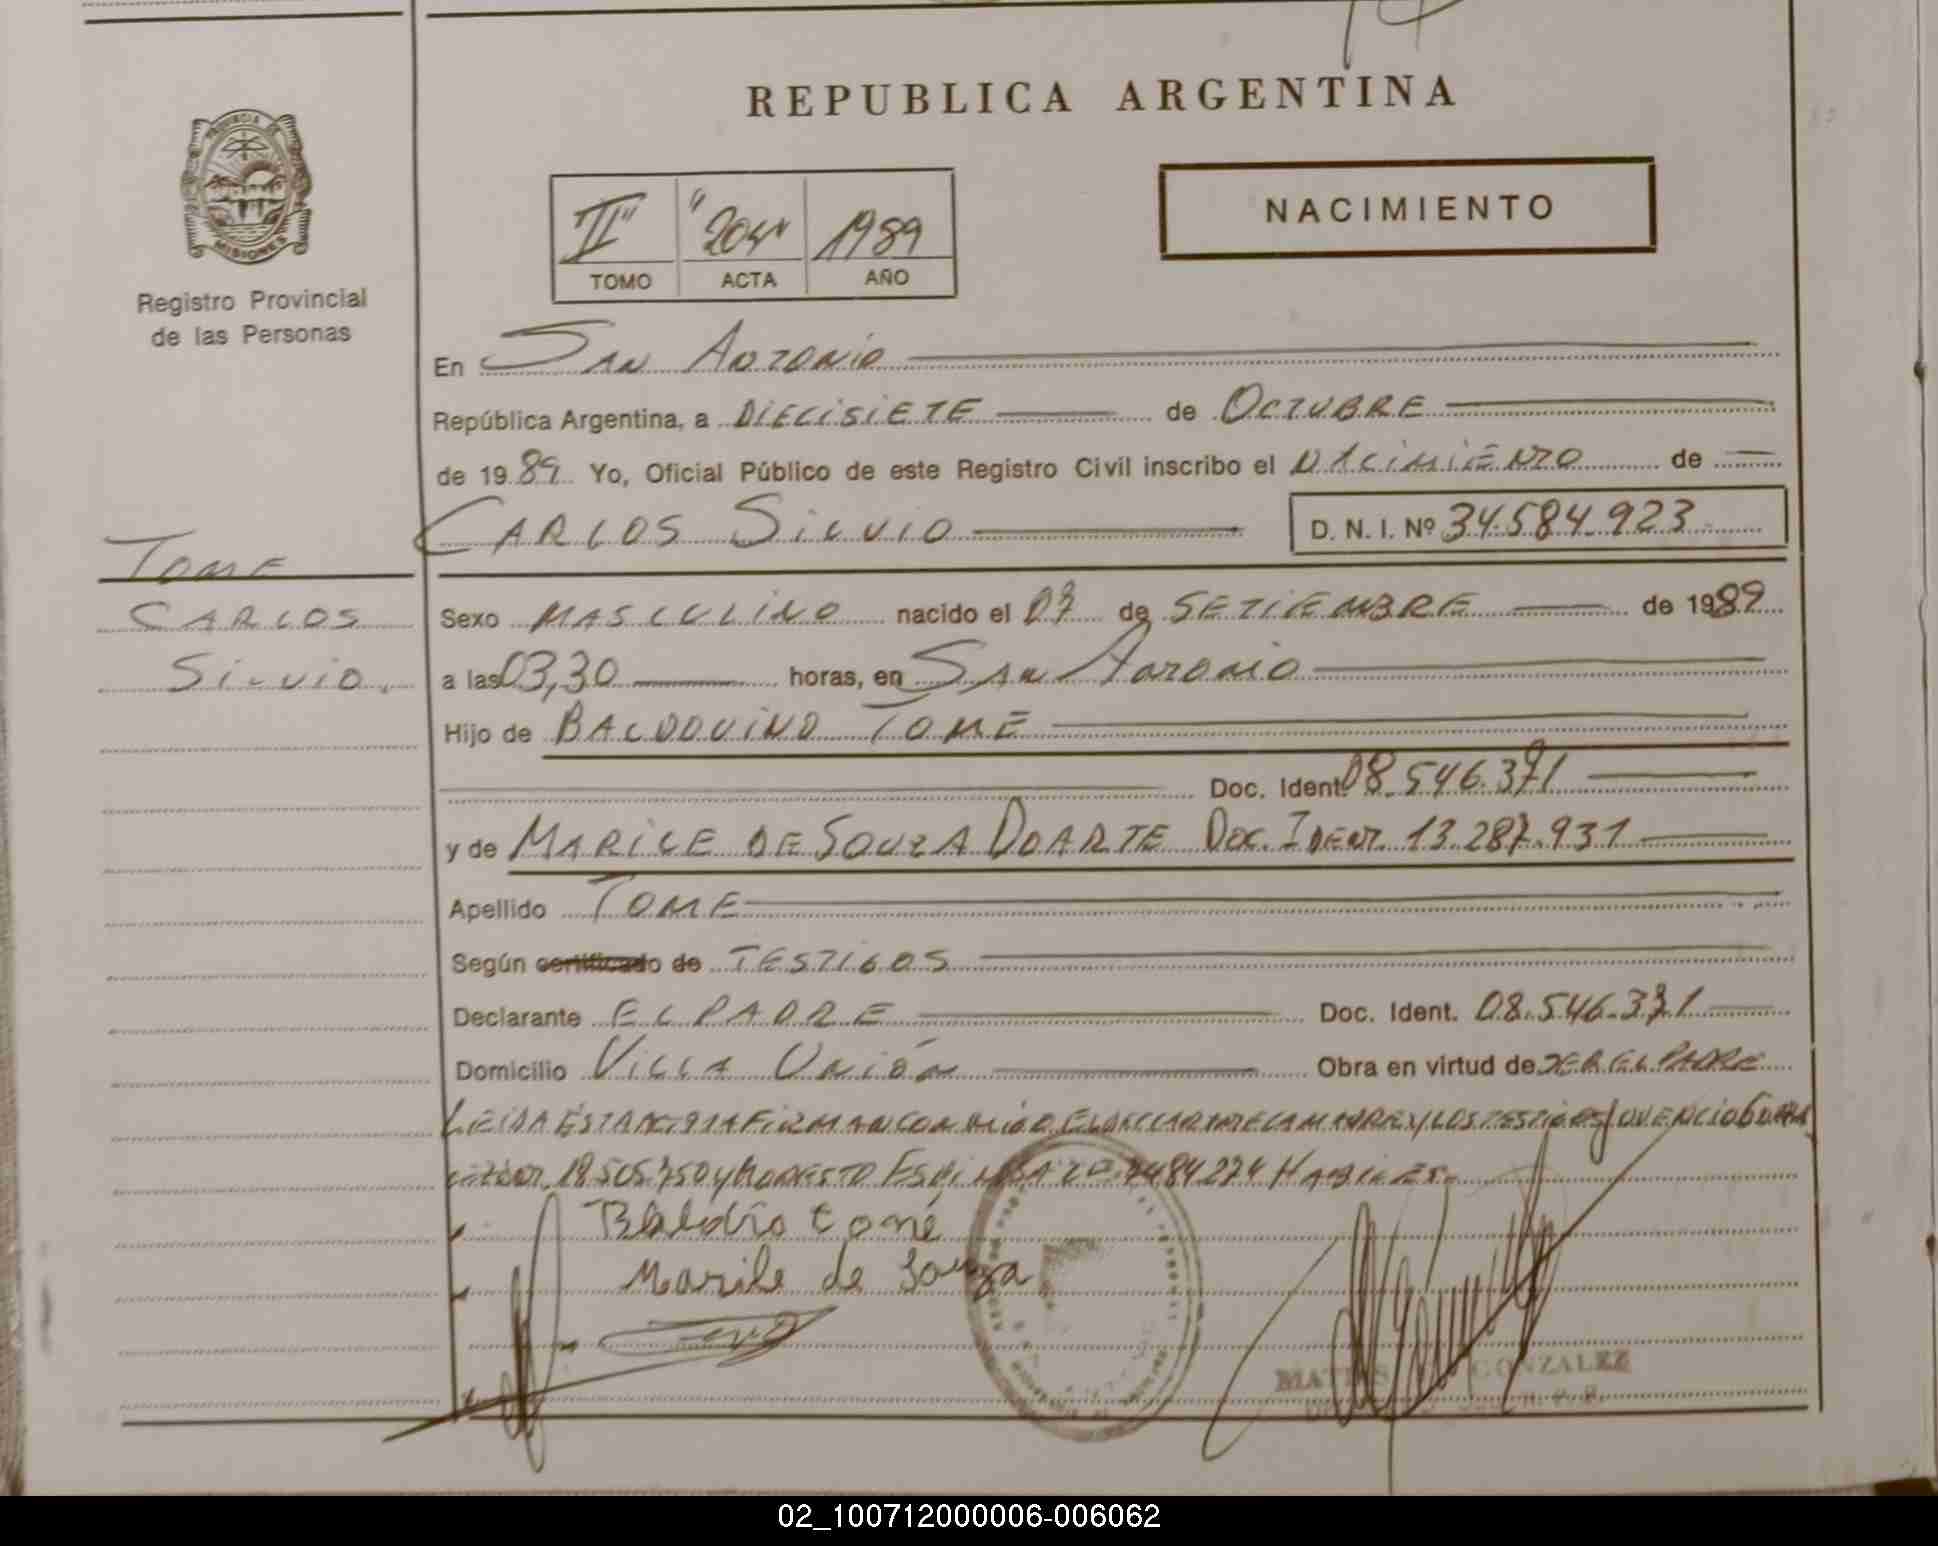 REPUBLICA ARGENTINA
PROVINCIA DE
MISIONES
Registro Provincial
de las Personas
II" "204" 1989
TOMO ACTA AÑO
NACIMIENTO
En SAN ANTONIO
República Argentina, a DIECISIETE de OCTUBRE
de 1989 Yo, Oficial Público de este Registro Civil inscribo el NACIMIENTO de
CARLOS SILVIO D. N. I. Nº 34.584.923
TOME
CARLOS
SILVIO.
Sexo MASCULINO nacido el 07 de SETIEMBRE de 1989
a las 03,30 horas, en SAN ANTONIO
Hijo de BALDOUINO TOME
Doc. Ident. 08.546.371
y de MARILE DE SOUZA DOARTE DOC. IDENT. 13.287.931
Apellido TOME
Según certificado de TESTIGOS
Declarante EL PADRE Doc. Ident. 08.546.371
Domicilio VILLA UNIÓN Obra en virtud de SER EL PADRE
LEIDA ESTA ACTA FIRMAN CONMIGO EL DECLARANTE LA MADRE Y LOS TESTIGOS JUVENCIO
18.505.750 y MODESTO HABILES.
Baldío tomé
Marile de Souza
GONZALEZ
02_100712000006-006062